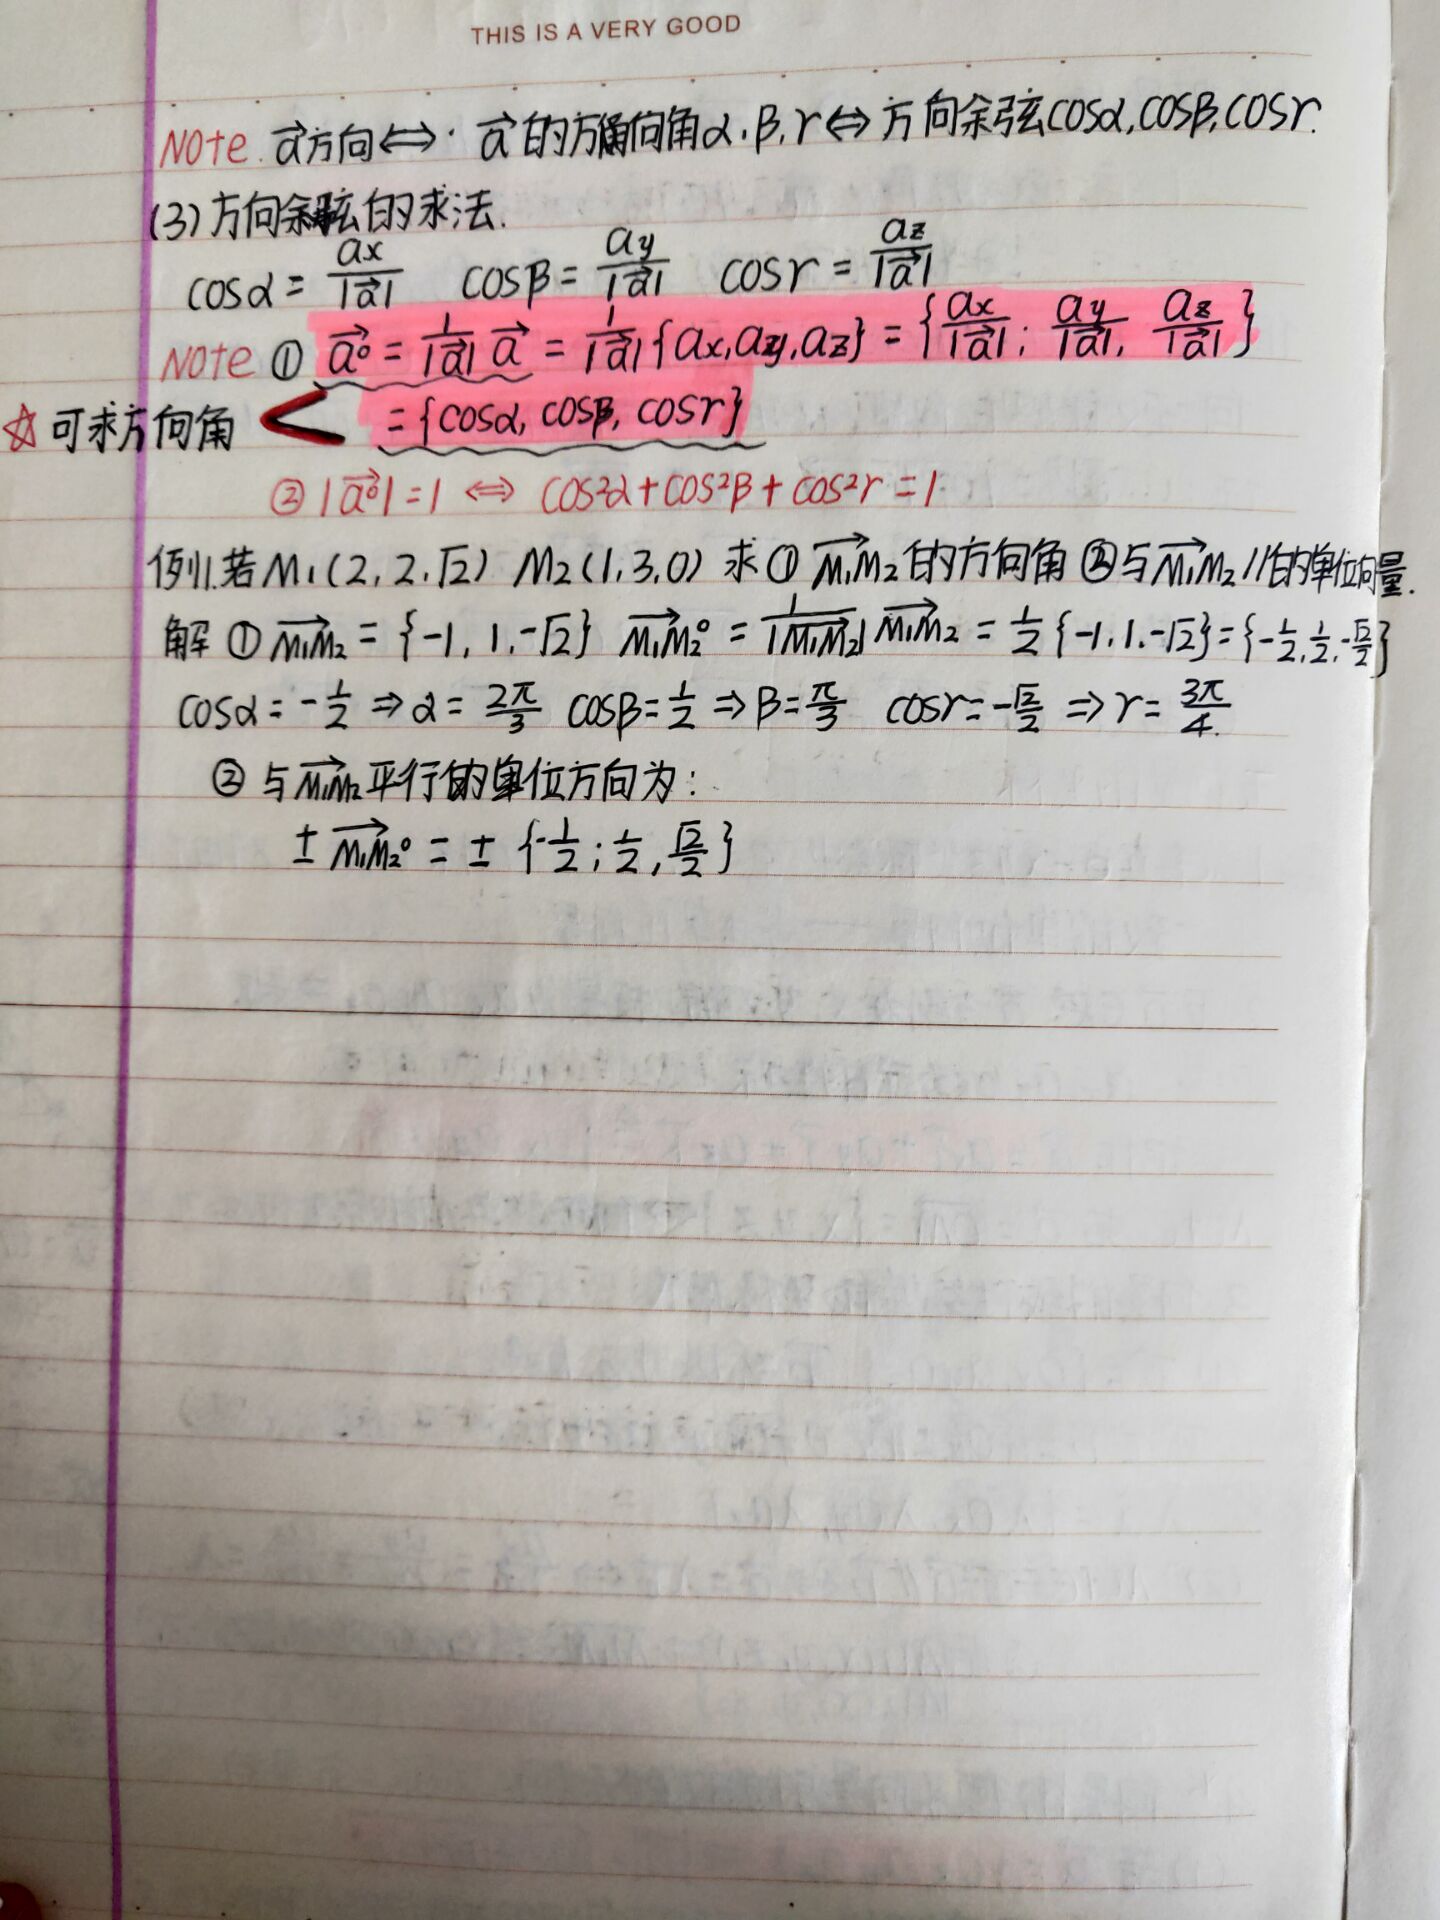 THIS IS A VERY GOOD
Note. a⃗方向⇔· a⃗的方向角α.β,r⇔方向余弦cosα,cosβ,cosr.
(3)方向余弦的求法.
cosα = ax/|a⃗| cosβ = ay/|a⃗| cosr = az/|a⃗|
Note ① a⃗° = 1/|a⃗| a⃗ = 1/|a⃗| {ax,ay,az} = {ax/|a⃗|; ay/|a⃗|, az/|a⃗|}
☆可求方向角 < = {cosα, cosβ, cosr}
② |a⃗°|=1 ⇔ cos²α+cos²β+cos²r=1
例1.若M₁(2,2,√2) M₂(1,3,0) 求① M₁M₂⃗的方向角②与M₁M₂⃗//的单位向量.
解 ① M₁M₂⃗ = {-1, 1.-√2} M₁M₂⃗° = 1/|M₁M₂⃗| M₁M₂⃗ = 1/2 {-1.1.-√2}={-1/2,1/2,-√2/2}
cosα=-1/2 ⇒α= 2π/3 cosβ=1/2 ⇒β=π/3 cosr=-√2/2 ⇒r= 3π/4.
② 与M₁M₂⃗平行的单位方向为:
± M₁M₂⃗° = ± {-1/2; 1/2, √2/2}